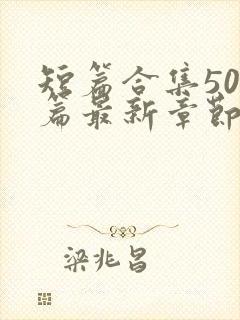 短篇合集50
篇最新章节
梁兆昌